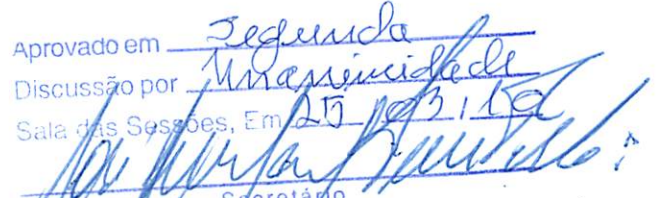 Aprovado em Segunda
Discussão por Unanimidade
Sala das Sessões, Em 25 / 03 /
Secretário